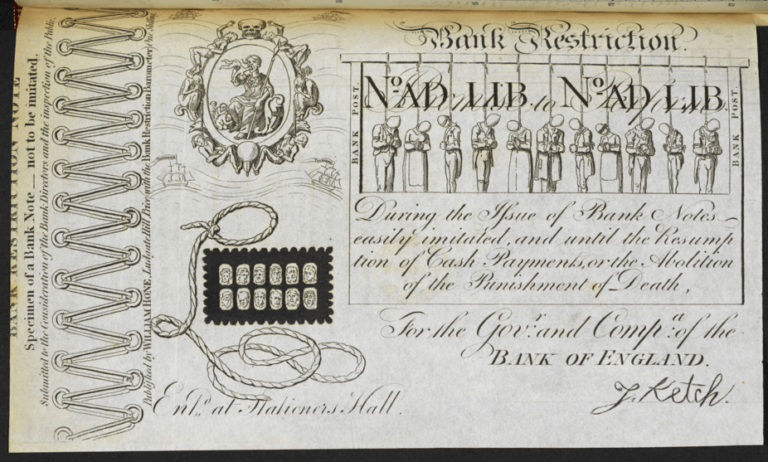 BANK RESTRICTION NOTE
Specimen of a Bank Note_ not to be imitated.
Submitted to the Consideration of the Bank Directors and the inspection of the Public.
Published by WILLIAM HONE, Ludgate Hill Price with the Bank Restriction Barometer
Bank Restriction.
BANK POST.
No. AD. LIB.
to
No. AD. LIB.
BANK POST.
During the Issue of Bank Notes
easily imitated, and until the Resump
tion of Cash Payments, or the Abolition
of the Punishment of Death,
For the Govr. and Compa. of the
BANK OF ENGLAND.
J. Ketch.
Entd. at Stationers Hall.